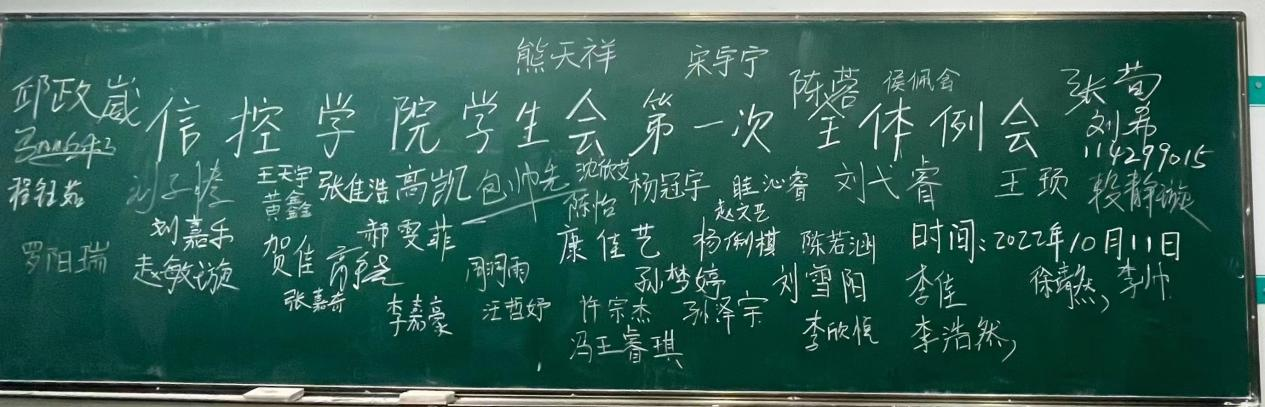 熊天祥 宋宇宁
陈蓉 侯佩含 张荀
邱政崴 刘希
信控学院学生会第一次全体例会
114299015
程钰茹 刘子 王天宇 张佳浩 高凯 包帅 沈欣艾 杨冠宇 眭沁睿 刘弋睿 王顼 段静璇
黄鑫 陈怡 赵文艺
刘嘉乐 郝雯菲 康佳艺 杨俐棋 陈若涵 时间:2022年10月11日
罗阳瑞 赵敏璇 贺佳 周润雨 孙梦婷 刘雪阳 李佳 徐靖然, 李帅
张嘉奇 李嘉豪 汪哲妤 许宗杰 孙泽宇 李欣恒 李浩然,
冯王睿琪